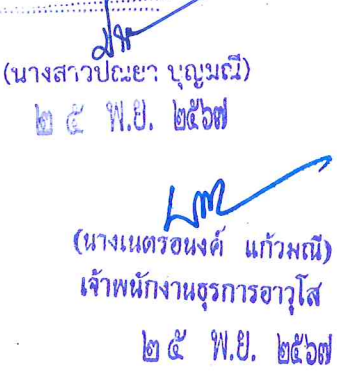 (นางสาวปณยา บุญมณี)
๒๕ พ.ย. ๒๕๖๗
(นางเนตรอนงค์ แก้วมณี)
เจ้าพนักงานธุรการอาวุโส
๒๕ พ.ย. ๒๕๖๗